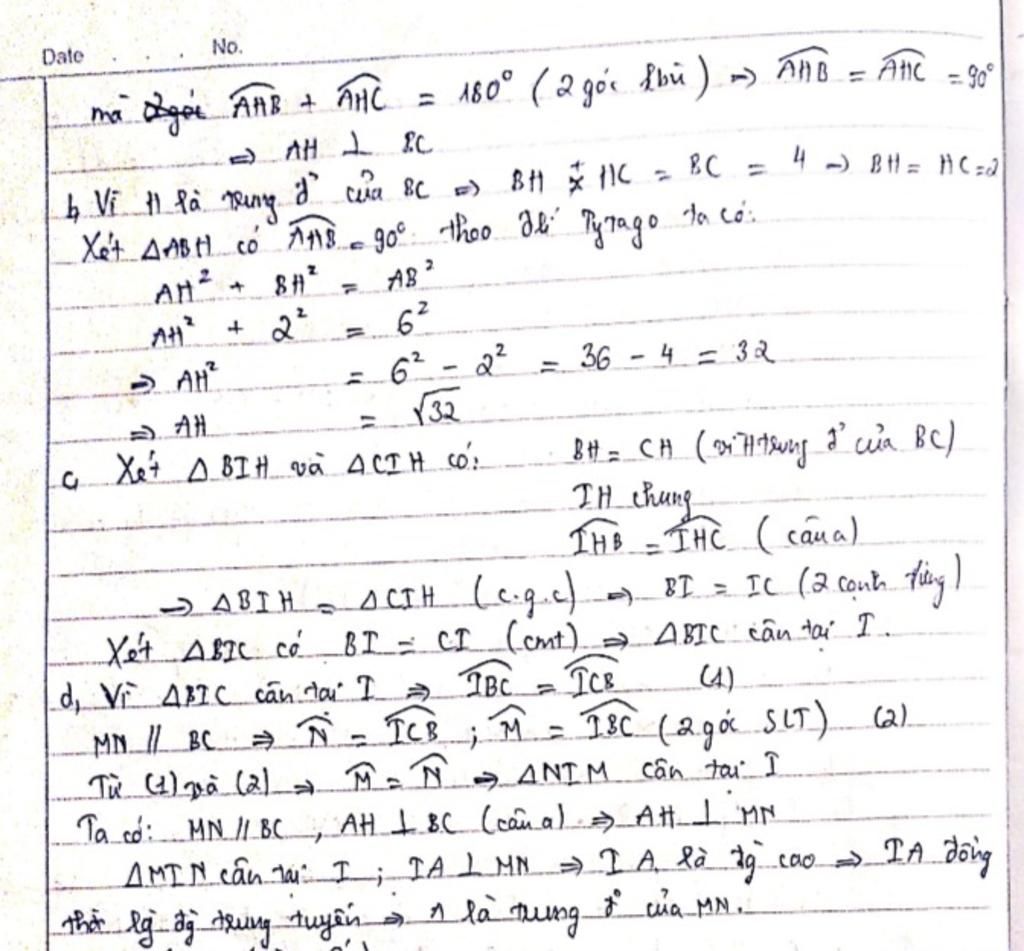 Date . . . No.
mà 2 góc AHB + AHC = 180° ( 2 góc kbù ) → AHB = AHC = 90°
⇒ AH ⊥ BC
b, Vì H là trung đ' của BC ⇒ BH + HC = BC = 4 → BH = HC = 2
Xét ΔABH có AHB = 90° theo đlí Tytago ta có:
AH² + BH² = AB²
AH² + 2² = 6²
⇒ AH² = 6² - 2² = 36 - 4 = 32
⇒ AH = √32
c, Xét ΔBIH và ΔCIH có: BH = CH (vì H trung đ' của BC)
IH chung
IHB = IHC ( câu a)
→ ΔBIH = ΔCIH (c.g.c) → BI = IC (2 cạnh tứng)
Xét ΔBIC có BI = CI (cmt) ⇒ ΔBIC cân tại I.
d, Vì ΔBIC cân tại I ⇒ IBC = ICB (1)
MN // BC ⇒ N = ICB ; M = IBC (2 góc SLT) (2)
Từ (1) và (2) ⇒ M = N ⇒ ΔNIM cân tại I
Ta có: MN // BC , AH ⊥ BC (câu a) ⇒ AH ⊥ MN
ΔMIN cân tại I ; IA ⊥ MN ⇒ IA là đg cao ⇒ IA đồng
thời là đg trung tuyến ⇒ A là trung đ' của MN.